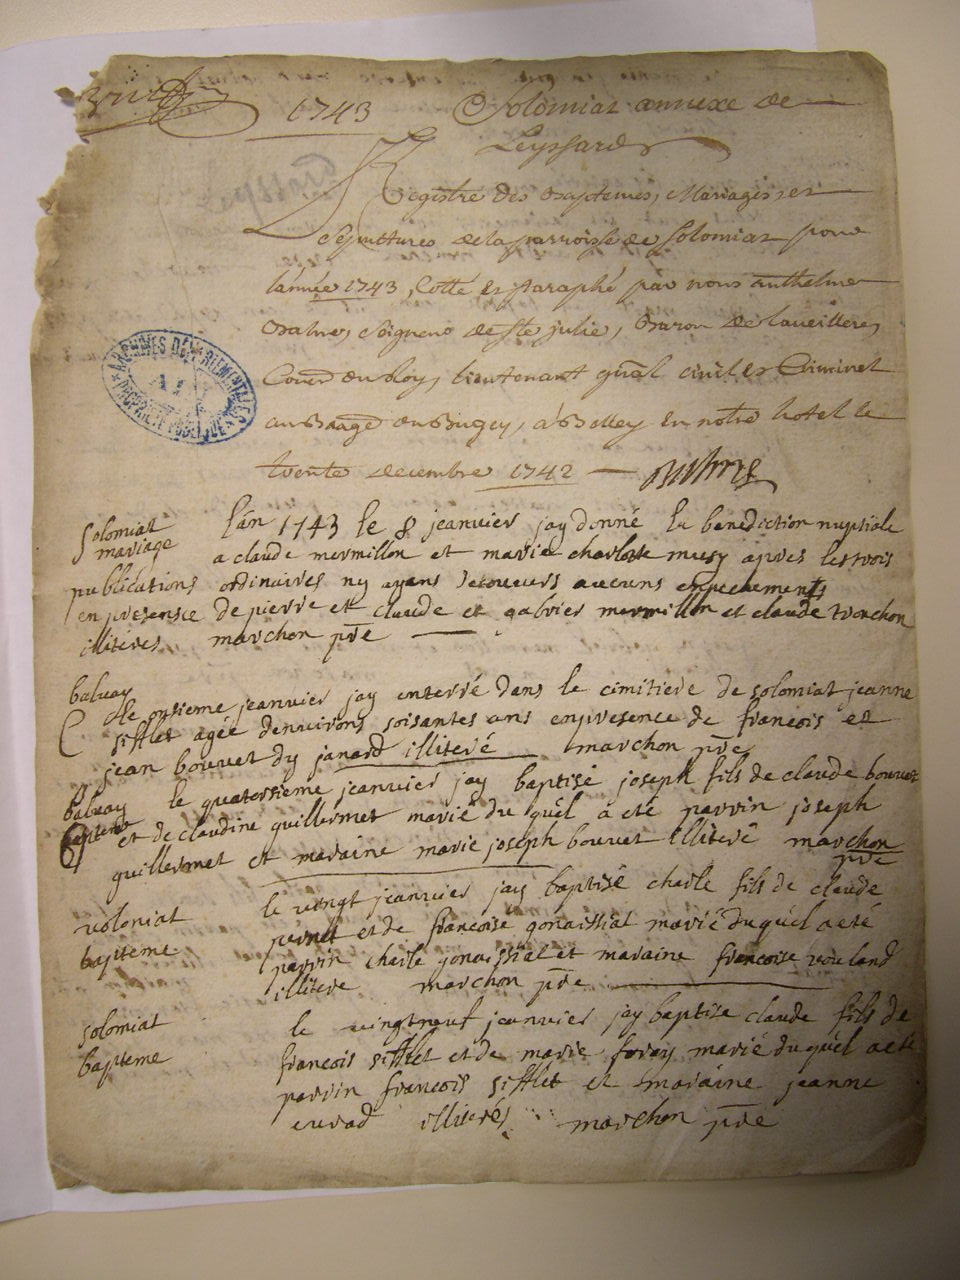 1743 Solomiat annexe de
Leyssard
Registre des Baptemes, Mariages, et
Sepultures de la parroisse de Solomiat pour
l'année 1743, Cotté et Paraphé par nous Anthelme
Balme, Seigneur de Ste julie, Baron de
Conser du Roy, Lieutenant gñal civil et Criminel
au Baage du Bugey, à Belley en notre hotel le
trente decembre 1742
ARCHIVES DEPARTEMENTALES
PROPRIETE PUBLIQUE
Solomiat
mariage
l'an 1743 le 8 jeanvier jay donné la benediction nuptiale
a claude mermillon et marie charlotte musy apres les trois
publications ordinaires ny ayans aucuns empechements
en presensce de pierre et claude et gabriel mermillon et claude tronchon
illiteres marchon pre
balvay
le onsieme jeanvier jay enterré dans le cimitiere de solomiat jeanne
sifflet agée denvirons soisantes ans en presence de francois et
jean bouvet dy janard illiteré marchon pre
balvay
bapteme
le quatorsieme jeanvier jay baptisé joseph fils de claude bouvet
et de claudine guillermet marié du quel a eté parrin joseph
guillermet et maraine marie joseph bouvet illiteré marchon
pre
voloniat
bapteme
le vingt jeanvier jay baptisé charle fils de claude
pernet et de francoise gonaissiat marié du quel a eté
parrin charle gonaissiat et maraine francoise
illitere marchon pre
solomiat
bapteme
le vingtneuf jeanvier jay baptise claude fils de
francois sifflet et de marie foray marié du quel a eté
parrin francois sifflet et maraine jeanne
illiterés marchon pre